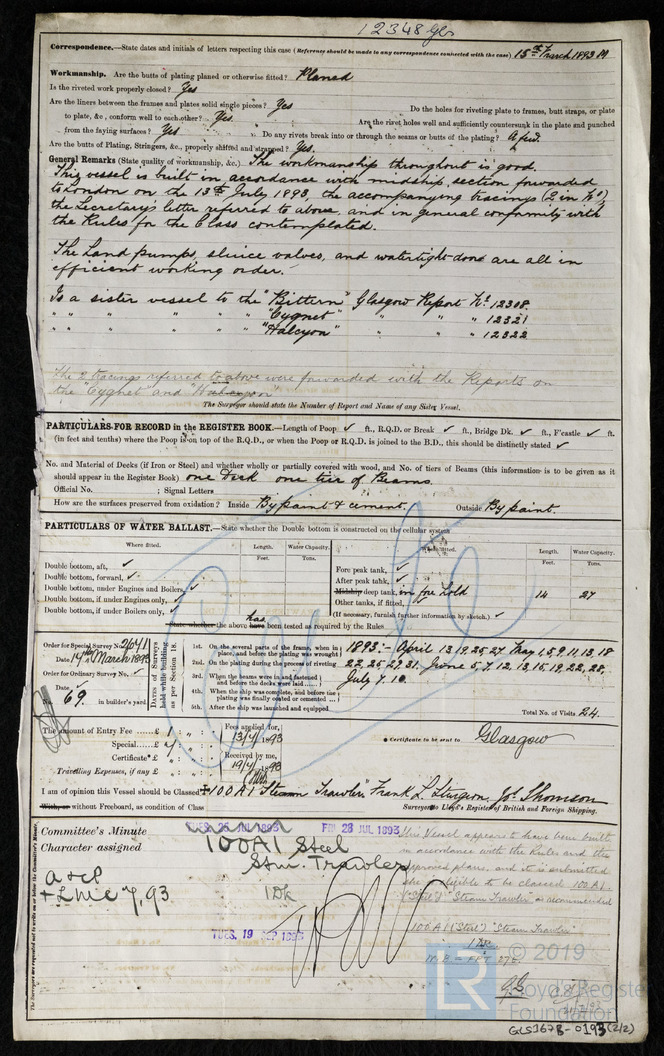 12348 Gls
Correspondence.—State dates and initials of letters respecting this case (Reference should be made to any correspondence connected with the case) 15th March 1893 M
Workmanship. Are the butts of plating planed or otherwise fitted? Planed
Is the riveted work properly closed? Yes
Are the liners between the frames and plates solid single pieces? Yes Do the holes for riveting plate to frames, butt straps, or plate
to plate, &c., conform well to each other? Yes Are the rivet holes well and sufficiently countersunk in the plate and punched
from the faying surfaces? Yes Do any rivets break into or through the seams or butts of the plating? A few.
Are the butts of Plating, Stringers, &c., properly shifted and strapped? Yes.
General Remarks (State quality of workmanship, &c.) The workmanship throughout is good.
This vessel is built in accordance with midship section forwarded
to London on the 13th July 1893, the accompanying tracings (2 in No),
the Secretary's letter referred to above, and in general conformity with
the Rules for the Class contemplated.
The hand pumps, sluice valves, and watertight doors are all in
efficient working order.
Is a sister vessel to the "Bittern" Glasgow Report No. 12308.
" " " " " "Cygnet" " " " 12321
" " " " " "Halcyon" " " " 12322
The 2 tracings referred to above were forwarded with the Reports on
the "Cygnet" and "Halcyon"
The Surveyor should state the Number of Report and Name of any Sister Vessel.
PARTICULARS FOR RECORD in the REGISTER BOOK.—Length of Poop ✓ ft., R.Q.D. or Break ✓ ft., Bridge Dk. ✓ ft., F'castle ✓ ft.
(in feet and tenths) where the Poop is on top of the R.Q.D., or when the Poop or R.Q.D. is joined to the B.D., this should be distinctly stated ✓
No. and Material of Decks (if Iron or Steel) and whether wholly or partially covered with wood, and No. of tiers of Beams (this information is to be given as it
should appear in the Register Book) one Deck one tier of Beams
Official No. ; Signal Letters
How are the surfaces preserved from oxidation? Inside By paint & cement. Outside By paint.
PARTICULARS OF WATER BALLAST.—State whether the Double bottom is constructed on the cellular system
Where fitted. Length. Water Capacity. Where fitted. Length. Water Capacity.
Feet. Tons. Feet. Tons.
Double bottom, aft, ✓ Fore peak tank, ✓
Double bottom, forward, ✓ After peak tank, ✓
Double bottom, under Engines and Boilers, ✓ Midship deep tank, in fore hold 14 27
Double bottom, if under Engines only, ✓ Other tanks, if fitted,
Double bottom, if under Boilers only, ✓ (If necessary, furnish further information by sketch.) ✓
State whether the above has have been tested as required by the Rules
Order for Special Survey No. 2641
Date 14th March 1893
Order for Ordinary Survey No. ✓
Date ✓
No. 69. in builder's yard.
Dates of Surveys held while building, as per Section 18.
1st. On the several parts of the frame, when in place, and before the plating was wrought
2nd. On the plating during the process of riveting
3rd. When the beams were in and fastened and before the decks were laid
4th. When the ship was complete, and before the plating was finally coated or cemented
5th. After the ship was launched and equipped
1893:- April 13, 19, 25, 27 May 1, 5, 9, 11, 13, 18
22, 25, 29, 31. June 5, 7, 12, 13, 15, 19, 22, 28,
July 7. 10.
Total No. of Visits 24.
The amount of Entry Fee £ : :
Special £ : :
Certificate* £ : :
Travelling Expenses, if any £ : :
Fees applied for, 13/7/1893
Received by me, 19/7/1893
* Certificate to be sent to Glasgow
I am of opinion this Vessel should be Classed 100A1 Steam Trawler Frank L. Sturgeon, Jos. Thomson
With, or without Freeboard, as condition of Class Surveyors to Lloyd's Register of British and Foreign Shipping.
Committee's Minute TUES. 25 JUL 1893 FRI. 28 JUL 1893
Character assigned 100A1 Steel
Stm. Trawler
1 Dk
+ LMC 7,93
TUES. 19 SEP 1893
This Vessel appears to have been built
in accordance with the Rules and the
approved plans, and it is submitted
she is eligible to be classed 100A1
("Steel") "Steam Trawler" as recommended
100A1 ("Steel") "Steam Trawler"
1 DK
The Surveyors are requested not to write on or below the Committee's Minute.
LR
© 2019
Lloyd's Register
Foundation
GLS167B-0193(2/2)